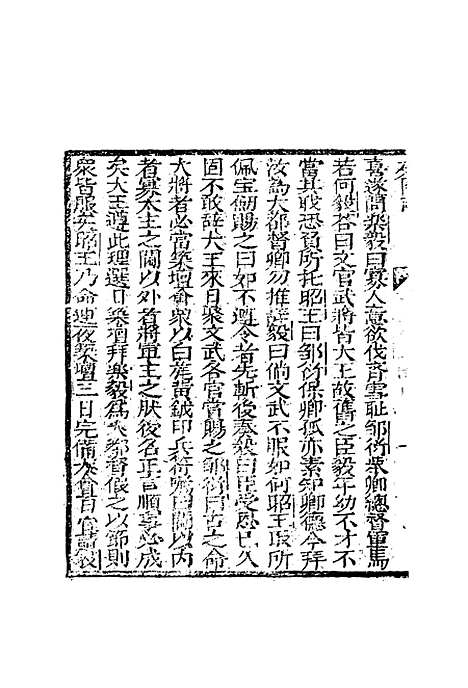 喜遂謂樂毅曰寡人意欲伐齊雪耻鄒衍舉卿總督軍馬
若何毅荅曰文官武將皆大王故舊之臣毅年幼不才不
當其職恐負所托昭王曰鄒衍保卿孤亦素知卿德今拜
汝為大都督卿勿推辞毅曰倘文武不服如何昭王取所
佩宝劍賜之曰如不遵令者先斬後奏毅曰臣受恩已久
固不敢辞大王來日聚文武各官當賜之鄒衍曰古之命
大將者必當築壇會衆以白旄黄鉞印兵符曰閫以内
者寡人主之閫以外者將軍主之肰後名正言順事必成
矣大王遵此理選日築壇拜樂毅為大都督假之以節則
衆皆服矣昭王乃命連夜築壇三日完備大會百官請毅